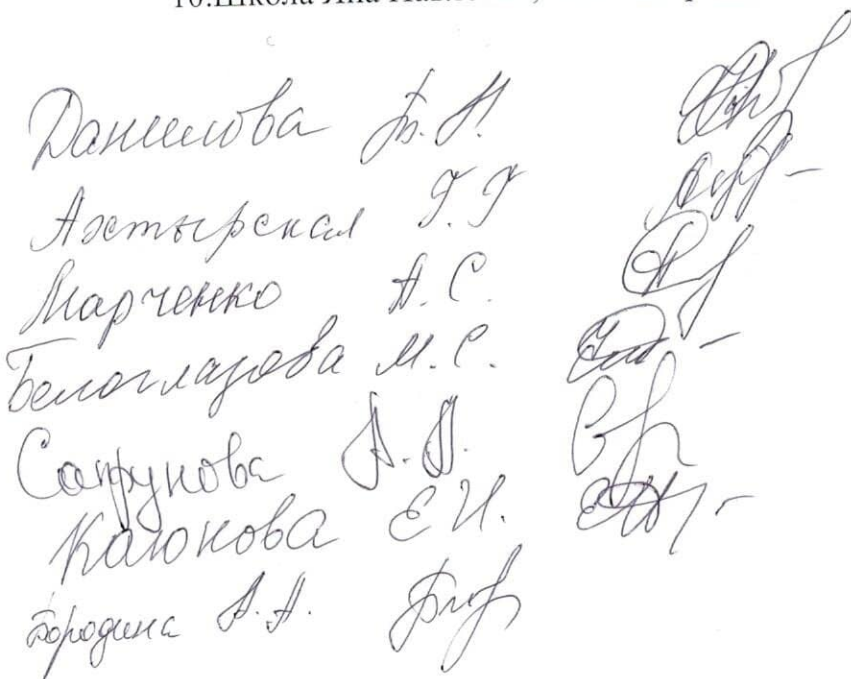 10.Школа Яна
Данилова Б. Н.
Ахтырская Г. Г
Марченко А. С.
Белоглазова М. С.
Сапрунова А. А.
Каюнова Е И.
Бородина А. А.